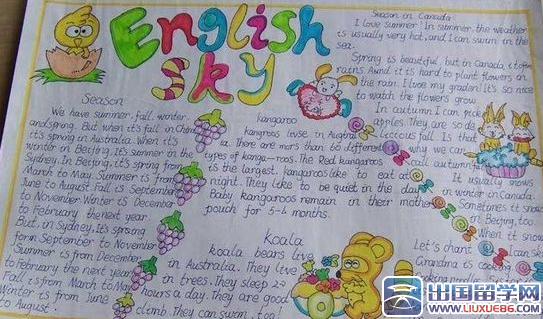 English
Sky
Season in Canada
I love summer! In summer, the weather
is usually very hot, and I can swim in the
sea.
Spring is beautiful, but in Canada, it often
rains. And it is hard to plant flowers in
the rain. I love my graden! It's so nice
to watch the flowers grow.
In autumn I can pick
apples. They are so de
licious
fall. Is that
why we can
call autumn
It usually snows
in winter in Canada.
Sometimes it snows
in Beijing, too.
When it snow
I can ski
Season
We have summer, fall, winter
and spring. But when it's fall in China
it's spring in Australia. When it's
winter in Beijing. It's summer in the
Sydney. In Beijing, it's spring from
March to May. Summer is from
June to August. Fall is September
to November. Winter is Decembe
to February the next year.
But, in Sydney, It's spring
form September to November
Summer is from December
to February the next year
Fall is from March to May
Winter is from June
to August.
kangaroo
kangroos live in Austra
a. There are mors than 60 different
types of kanga-roos. The Red kangaroos
is the largest. kangaroos like to eat at
night. They like to be quiet in the day
Baby kangaroos remain in their mother
pouch for 5-6 months.
Koala
koala bears live
in Australia. They live
in trees. They sleep 20
hours a day. They are good
climb. They can swim, too!
Let's chant
Grandma is cooking,
出国留学网
WWW.LIUXUE86.COM